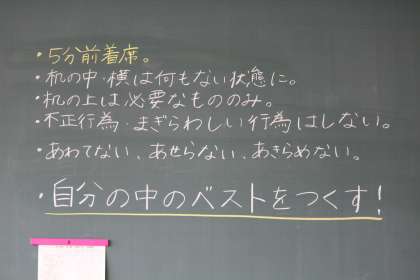 ・5分前着席。
・机の中・横は何もない状態に。
・机の上は必要なもののみ。
・不正行為・まぎらわしい行為はしない。
・あわてない、あせらない、あきらめない。
・自分の中のベストをつくす!